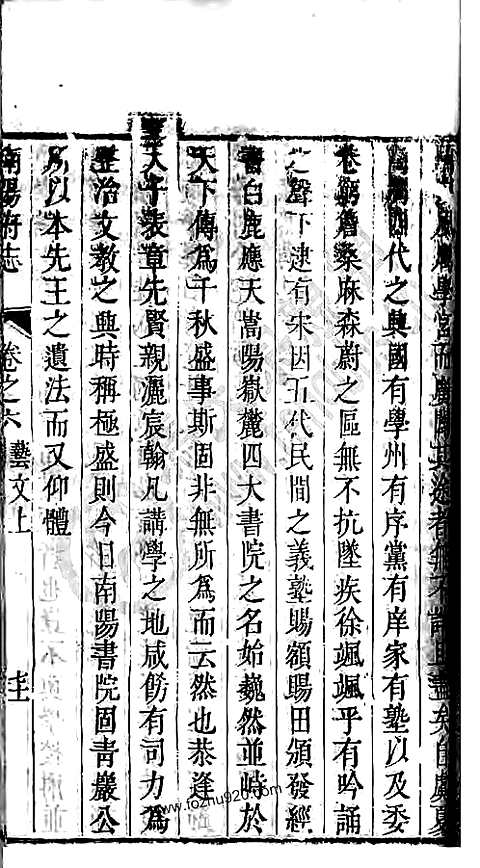 學宮而廣聞其途者無不詳且盡矣自虞夏
商周四代之興國有學州有序黨有庠家有塾以及委
巷窮簷桑麻森蔚之區無不抗墜疾徐颯颯乎有吟誦
之聲下逮有宋因五代民間之義塾賜額賜田頒發經
書白鹿應天嵩陽嶽麓四大書院之名始巍然並峙於
天下傳為千秋盛事斯固非無所為而云然也恭逢
聖天子表章先賢親灑宸翰凡講學之地咸飭有司力為
整治文教之興時稱極盛則今日南陽書院固青巖公
所以本先王之遺法而又仰體
南陽府志
卷之六
藝文上
www.fozhu920.com